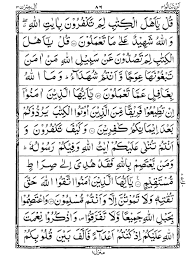 ٨٦
قُلْ يٰۤاَهْلَ الْكِتٰبِ لِمَ تَكْفُرُوْنَ بِاٰيٰتِ اللّٰهِ
وَاللّٰهُ شَهِيْدٌ عَلٰى مَا تَعْمَلُوْنَ قُلْ يٰۤاَهْلَ
الْكِتٰبِ لِمَ تَصُدُّوْنَ عَنْ سَبِيْلِ اللّٰهِ مَنْ اٰمَنَ
تَبْغُوْنَهَا عِوَجًا وَّاَنْتُمْ شُهَدَآءُ وَمَا اللّٰهُ
بِغَافِلٍ عَمَّا تَعْمَلُوْنَ يٰۤاَيُّهَا الَّذِيْنَ اٰمَنُوْۤا
اِنْ تُطِيْعُوْا فَرِيْقًا مِّنَ الَّذِيْنَ اُوْتُوا الْكِتٰبَ يَرُدُّوْكُمْ
بَعْدَ اِيْمَانِكُمْ كٰفِرِيْنَ وَكَيْفَ تَكْفُرُوْنَ وَ
اَنْتُمْ تُتْلٰى عَلَيْكُمْ اٰيٰتُ اللّٰهِ وَفِيْكُمْ رَسُوْلُهٗ وَ
مَنْ يَّعْتَصِمْ بِاللّٰهِ فَقَدْ هُدِيَ اِلٰى صِرَاطٍ
مُّسْتَقِيْمٍ يٰۤاَيُّهَا الَّذِيْنَ اٰمَنُوا اتَّقُوا اللّٰهَ حَقَّ
تُقٰتِهٖ وَلَا تَمُوْتُنَّ اِلَّا وَاَنْتُمْ مُّسْلِمُوْنَ وَاعْتَصِمُوْا
بِحَبْلِ اللّٰهِ جَمِيْعًا وَّلَا تَفَرَّقُوْا وَاذْكُرُوْا نِعْمَتَ
اللّٰهِ عَلَيْكُمْ اِذْ كُنْتُمْ اَعْدَآءً فَاَلَّفَ بَيْنَ قُلُوْبِكُمْ
منزل